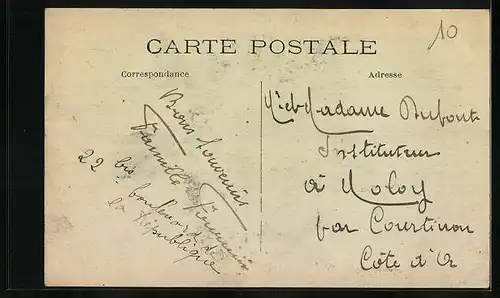 10
CARTE POSTALE
Correspondance
Adresse
Bons Souvenirs
Famille
22 bis boulevard de
la République
Madame
Instituteur
à Moloy
par Courtivron
Côte d'Or